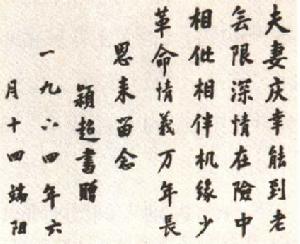 夫妻庆幸能到老
无限深情在险中
相伙相伴机缘少
革命情义万年长
恩来留念
颖超书赠
一九六四年六
月十四端阳